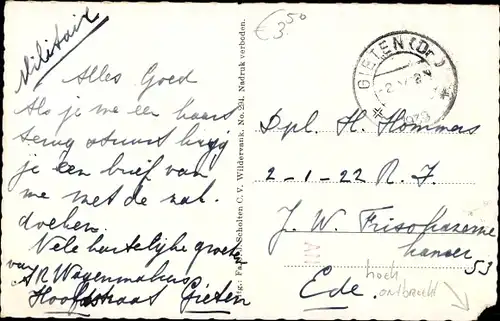 Militair
Alles Goed
Als je me een kaart
terug stuurt krijg
je een brief van
me met de
Vele hartelijke groeten
van
J R Wagenmakers
Hoofdstraat Gieten
Uitg.: Fa. Scholten C. V. Wildervank. No. 291. Nadruk verboden.
€ 3.50
GIETEN (Dr.)
Dpl. H. Hommers
2-1-22 R. I.
J. W. Frisokazerne
kamer 53
Ede.
hoek
ontbreekt